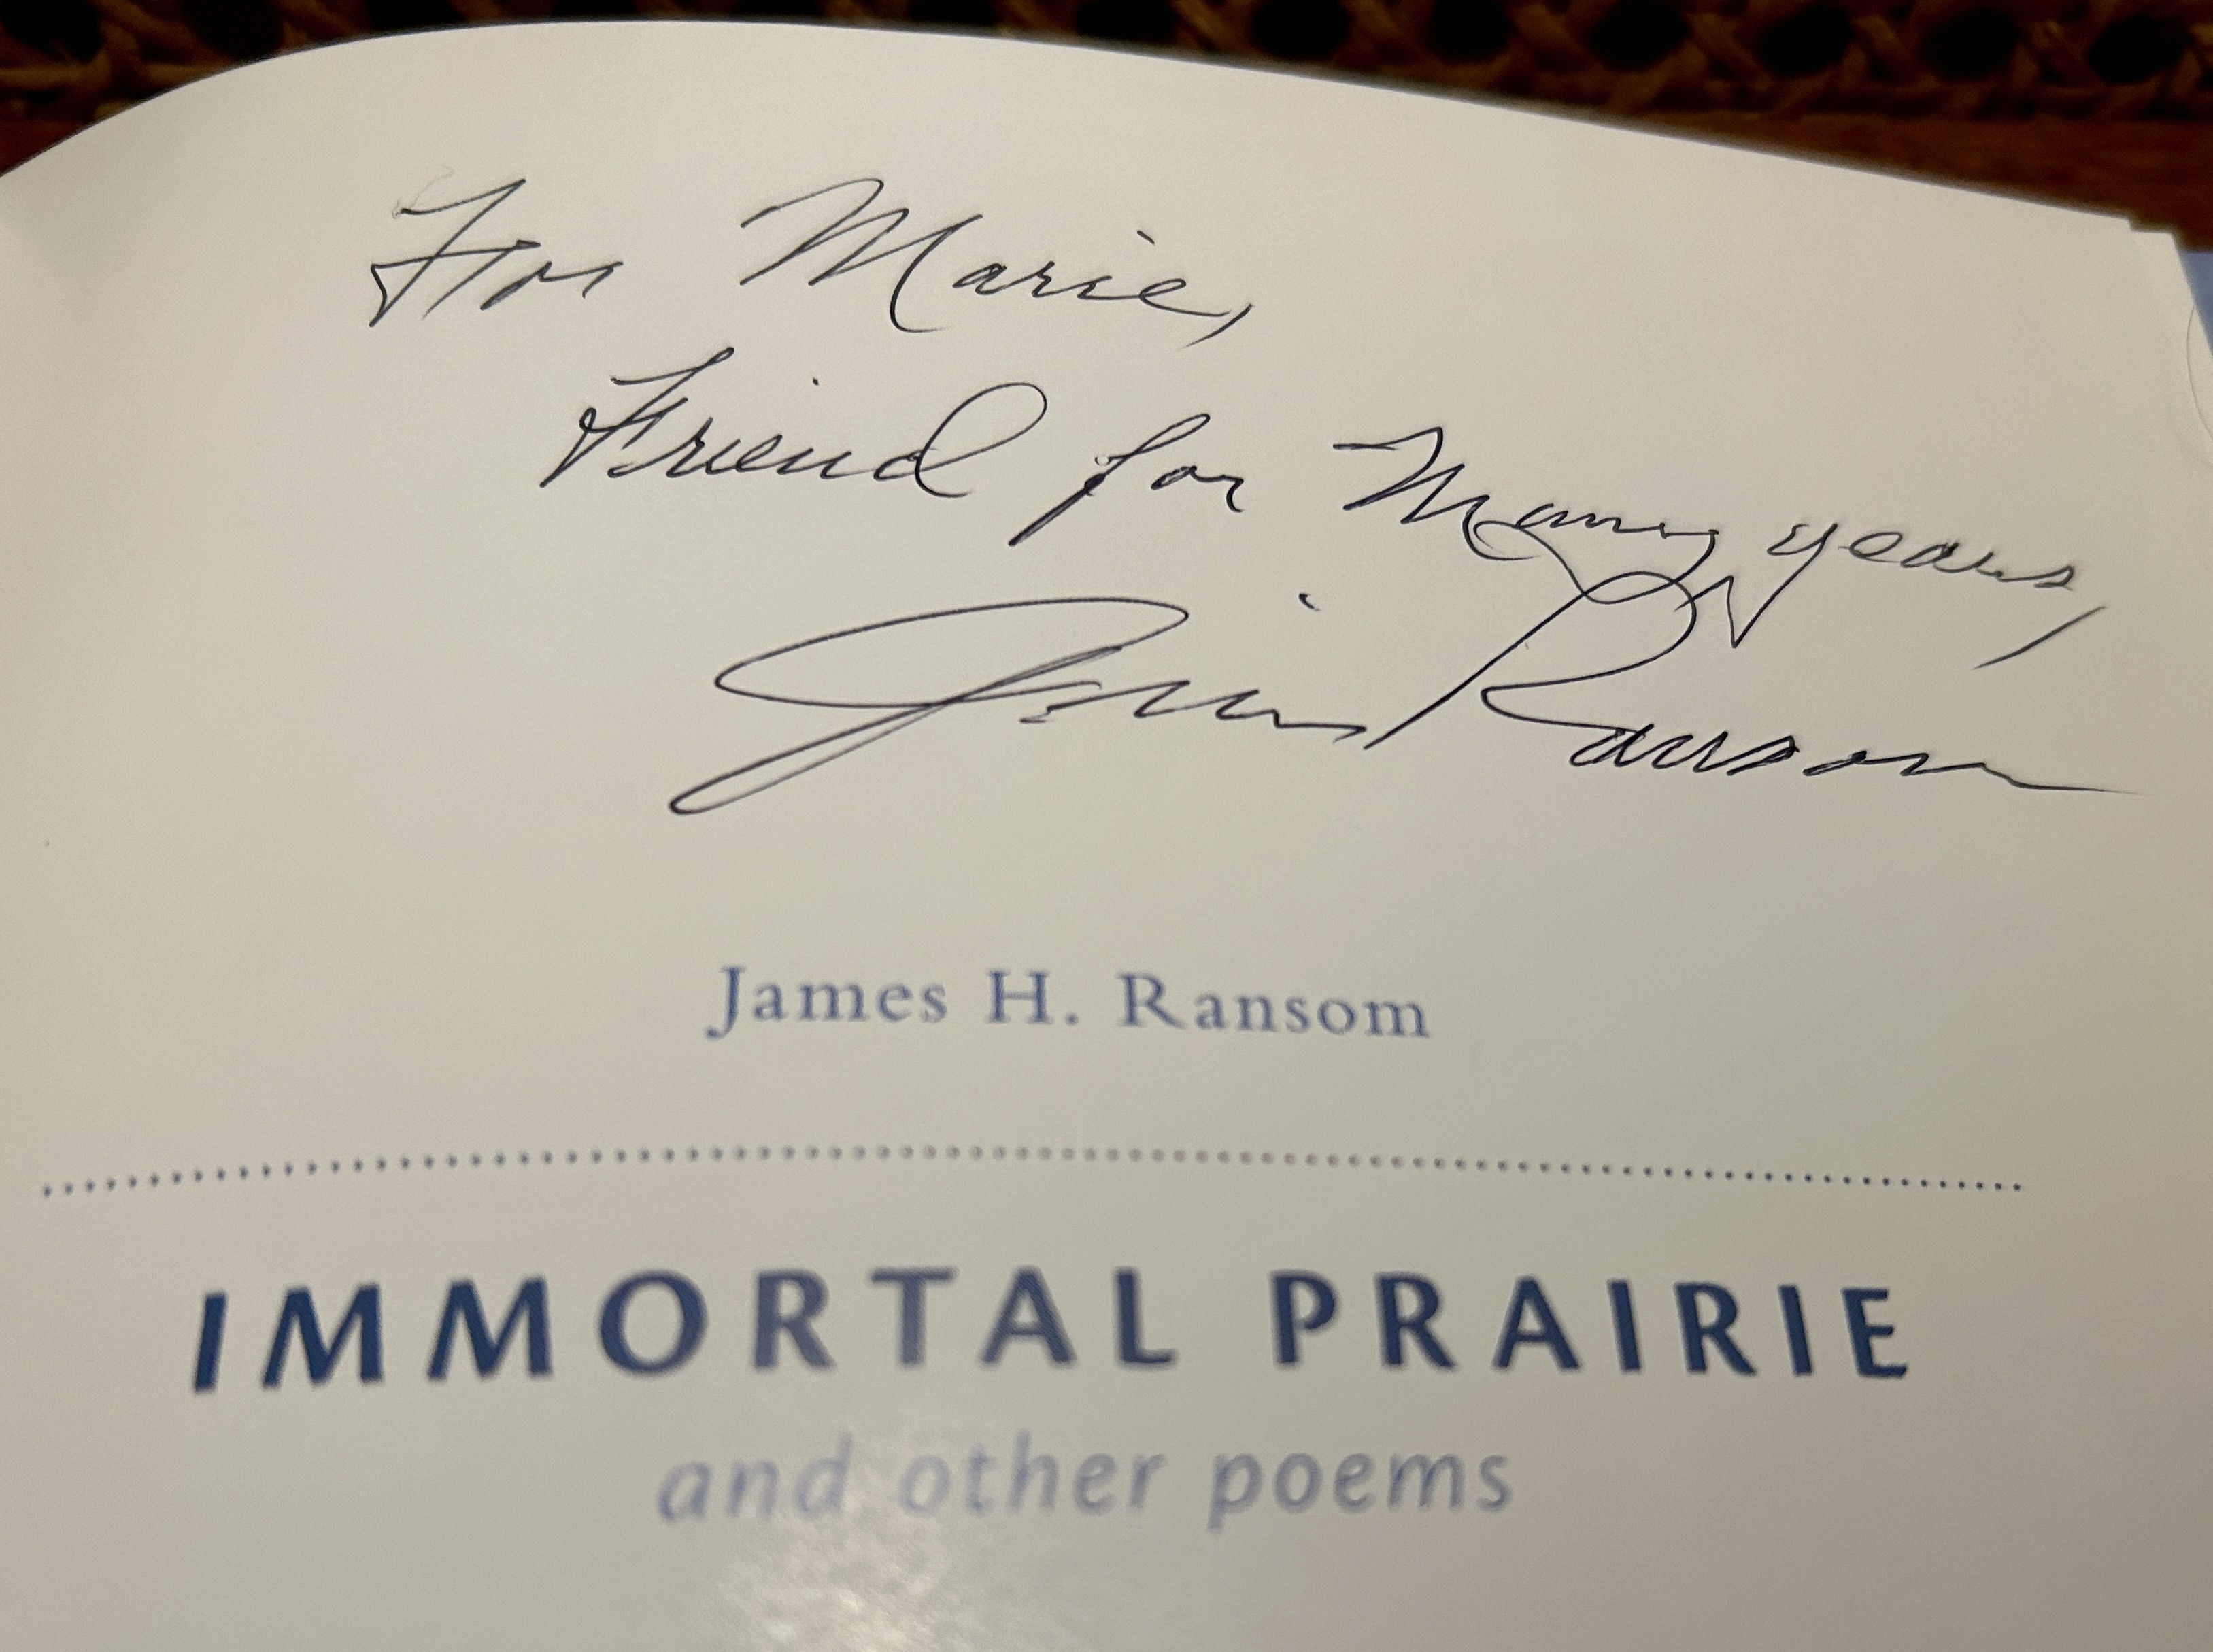 For Marie,
Friend for Many years,
Jim Ransom
James H. Ransom
IMMORTAL PRAIRIE
and other poems